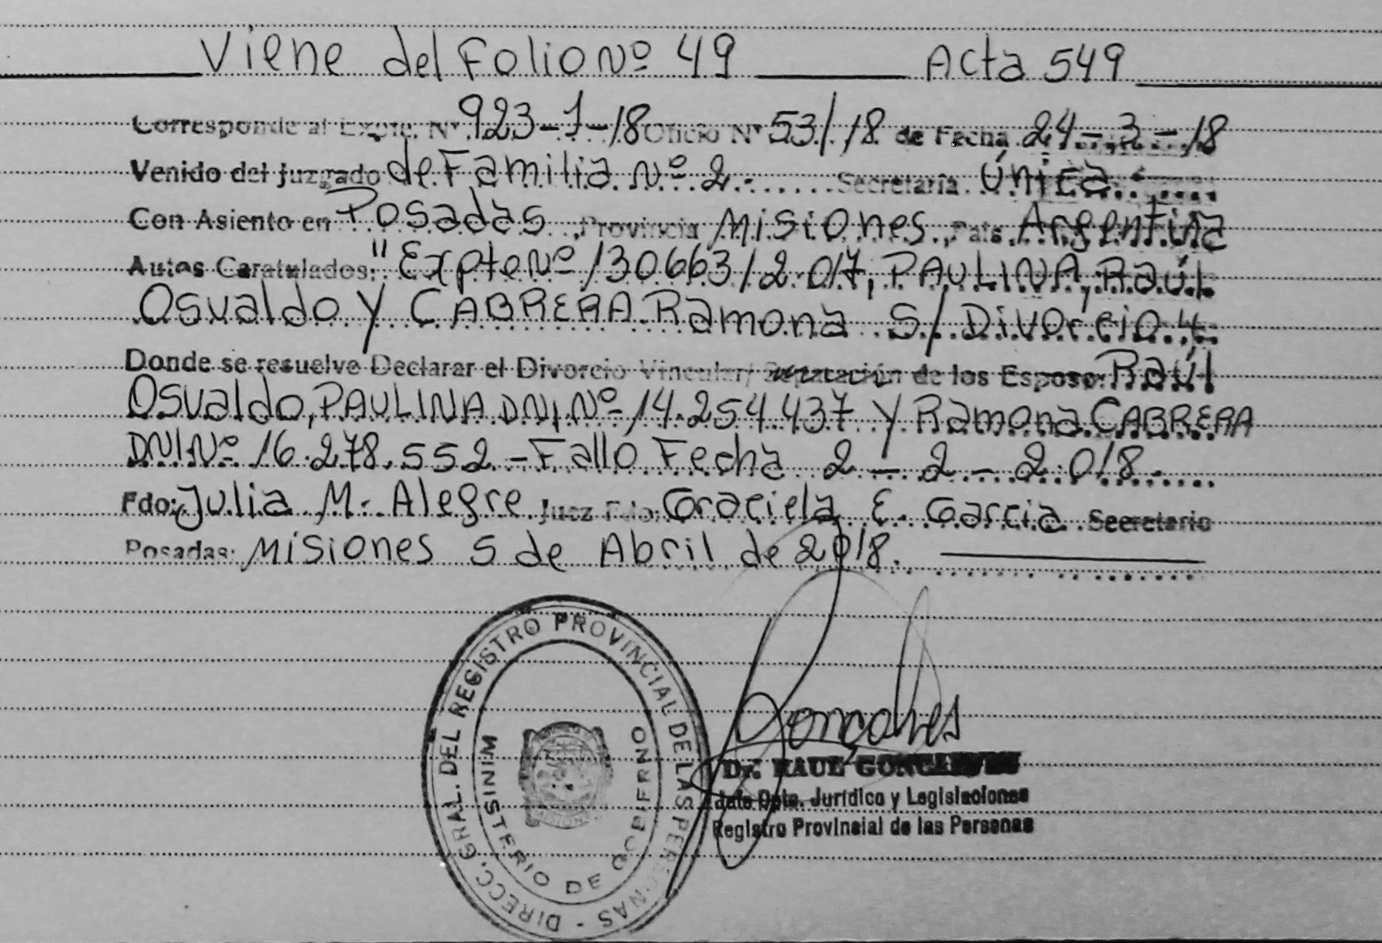 Viene del Folio Nº 49 Acta 549
Corresponde al Expte. Nº 923-1-18 Oficio Nº 53/18 de Fecha 24-3-18
Venido del Juzgado de Familia Nº 2 Secretaría Única
Con Asiento en Posadas, Provincia Misiones, País Argentina
Autos Caratulados: "Expte Nº 130663/2017, PAULINA, Raúl
Osvaldo y CABRERA Ramona S/Divorcio"
Donde se resuelve Declarar el Divorcio Vincular/ Separación de los Esposo: Raúl
Osvaldo, PAULINA DNI Nº 14.254.437 y Ramona CABRERA
DNI Nº 16.278.552 - Fallo Fecha 2 - 2 - 2018.
Fdo: Julia M. Alegre Juez Fdo: Graciela E. Garcia Secretario
Posadas: Misiones 5 de Abril de 2018.
DIRECC. GRAL. DEL REGISTRO PROVINCIAL DE LAS PERSONAS
MINISTERIO DE GOBIERNO
Gonçalves
Dr. RAUL GONCALVES
Jefe Dpto. Jurídico y Legislaciones
Registro Provincial de las Personas